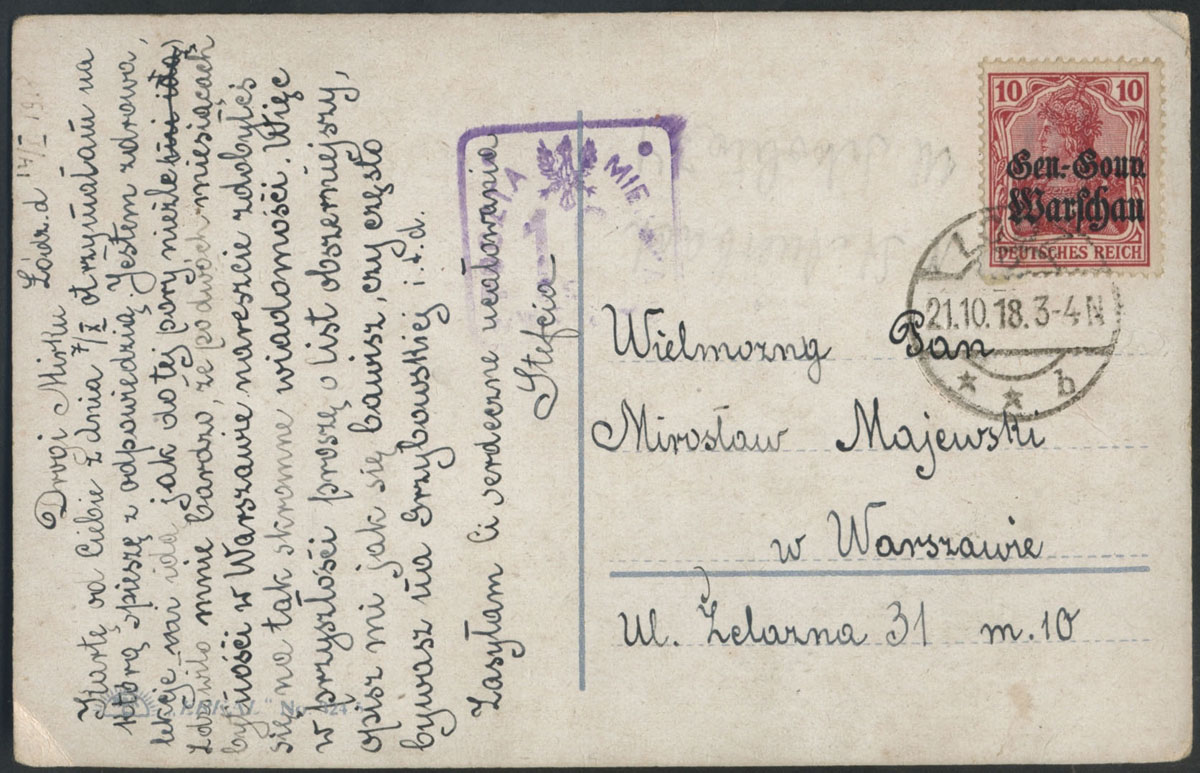 Łódź. d 14/X 19
Drogi Mirku
Kartę od Ciebie z dnia 7/X otrzymałam na
którą śpieszę z odpowiedzią. Jestem zdrowa,
lekcje mi idą jak do tej pory nieźle mi idą,
Zdziwiło mnie bardzo, że po dwóch miesiącach
bytności w Warszawie nareszcie zdobyłeś
się na tak skromne wiadomości. Więc
w przyszłości proszę o list obszerniejszy,
opisz mi jak się bawisz, czy często
bywasz na Grzybowskiej i. t. d.
Zasyłam Ci serdeczne ucałowania
Stefcia
MIE
1
10 10
Gen.-Gouv.
Warschau
DEUTSCHES REICH
21.10.18.3-4N
* * b
Wielmożny Pan
Mirosław Majewski
w Warszawie
ul. Żelazna 31 m. 10